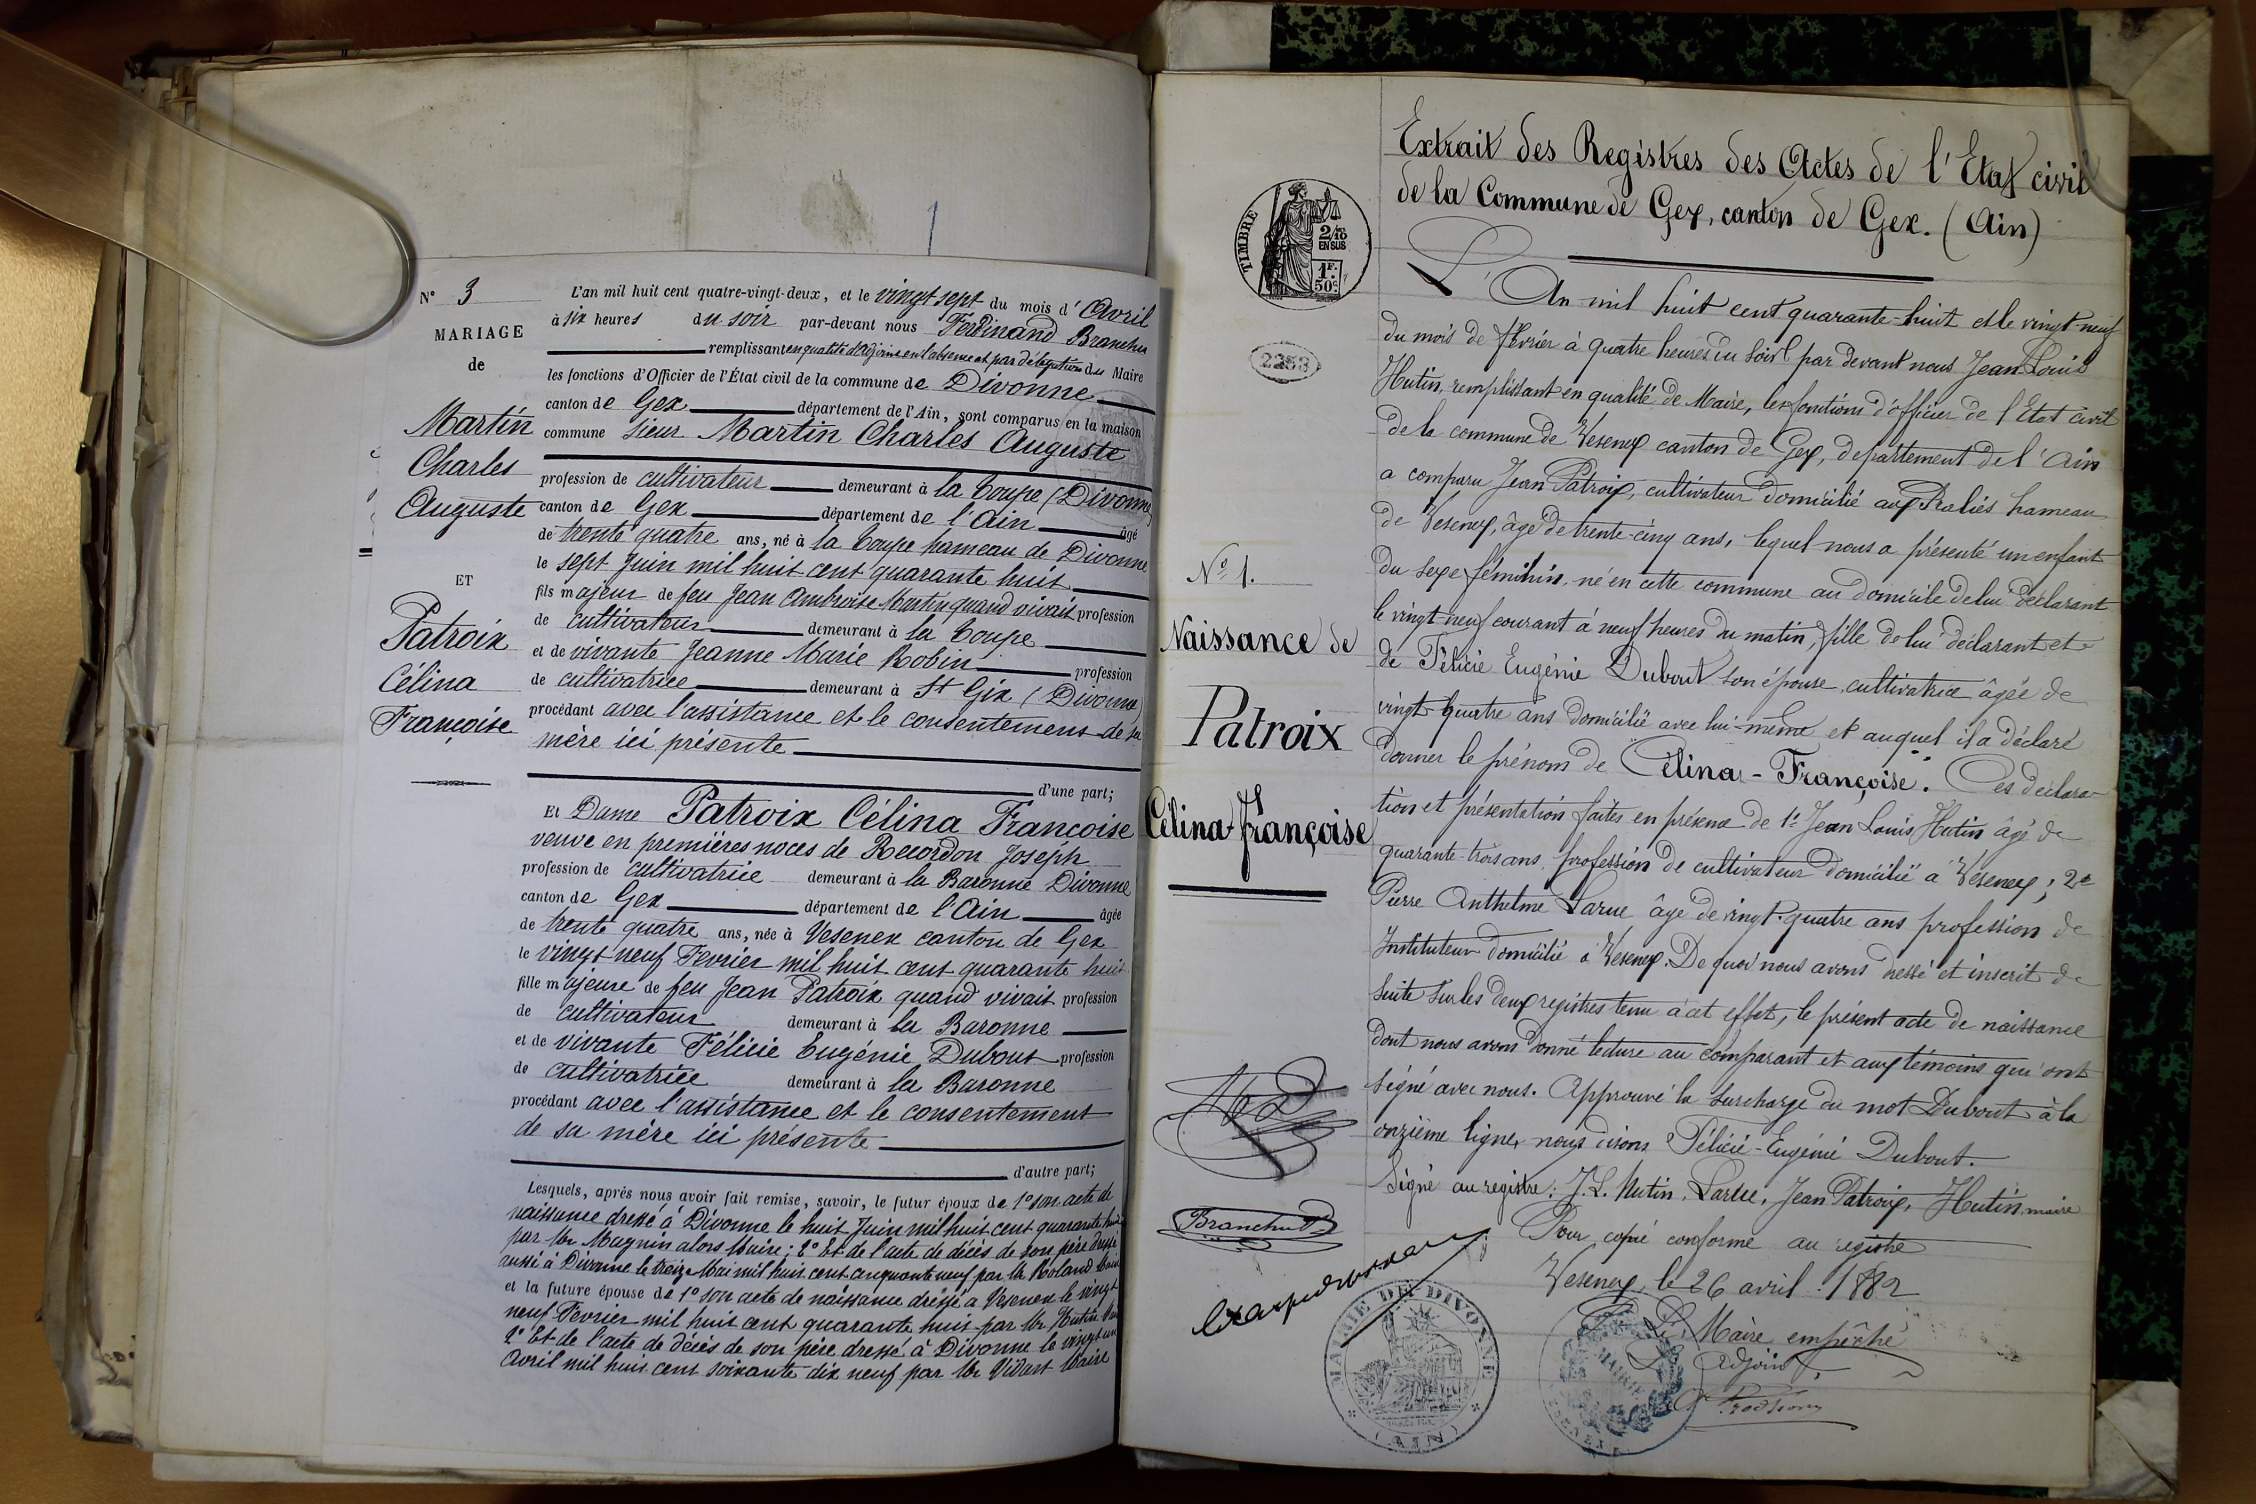 1
N° 3
MARIAGE
de
Martin
Charles
Auguste
ET
Patroix
Célina
Françoise
L'an mil huit cent quatre-vingt-deux, et le vingt sept du mois d' Avril
à six heures du soir par-devant nous Ferdinand Branchu
remplissant en qualité d'Adjoint en l'absence et par délégation du Maire
les fonctions d'Officier de l'État civil de la commune de Divonne
canton de Gex département de l'Ain, sont comparus en la maison
commune Sieur Martin Charles Auguste
profession de cultivateur demeurant à la Coupe (Divonne)
canton de Gex département de l'Ain âgé
de trente quatre ans, né à la Coupe hameau de Divonne
le sept Juin mil huit cent quarante huit
fils majeur de feu Jean Ambroise Martin quand vivait profession
de cultivateur demeurant à la Coupe
et de vivante Jeanne Marie Robin profession
de cultivatrice demeurant à St Gix (Divonne)
procédant avec l'assistance et le consentement de sa
mère ici présente
d'une part;
Et Dame Patroix Célina Françoise
veuve en premières noces de Recordon Joseph
profession de cultivatrice demeurant à la Baronne Divonne
canton de Gex département de l'Ain âgée
de trente quatre ans, née à Vesenex canton de Gex
le vingt neuf Fevrier mil huit cent quarante huit
fille majeure de feu Jean Patroix quand vivait profession
de cultivateur demeurant à la Baronne
et de vivante Félicie Eugénie Dubout profession
de cultivatrice demeurant à la Baronne
procédant avec l'assistance et le consentement
de sa mère ici présente
d'autre part;
Lesquels, après nous avoir fait remise, savoir, le futur époux de 1° son acte de
naissance dressé à Divonne le huit Juin mil huit cent quarante huit
par Mr Magnin alors Maire; 2° Et de l'acte de décès de son père dressé
aussi à Divonne le treize Mai mil huit cent cinquante neuf par Mr Roland Maire
et la future épouse de 1° son acte de naissance dréssé à Vesenex le vingt
neuf Fevrier mil huit cent quarante huit par Mr Hutin Maire
2° Et de l'acte de décès de son père dressé à Divonne le vingt un
Avril mil huit cent soixante dix neuf par Mr Vidart Maire
TIMBRE
2/10
EN SUS
1F.
50c.
2253
N° 1.
Naissance de
Patroix
Célina-Françoise
Branchu
MAIRIE DE DIVONNE
(AIN)
Extrait des Registres des Actes de l'Etat civil
de la Commune de Gex, canton de Gex. (Ain)
L'An mil huit cent quarante-huit et le vingt-neuf
du mois de février à quatre heures du soir par devant nous Jean Louis
Hutin, remplissant en qualité de Maire, les fonctions d'officier de l'Etat civil
de la commune de Vesenex canton de Gex, département de l'Ain
a comparu Jean Patroix, cultivateur domicilié aux Praliés hameau
de Vesenex, âgé de trente-cinq ans, lequel nous a présenté un enfant
du sexe féminin, né en cette commune au domicile de lui déclarant
le vingt neuf courant à neuf heures du matin, fille de lui déclarant et
de Félicie Eugénie Dubout son épouse, cultivatrice âgée de
vingt-quatre ans domicilié avec lui-même et auquel il a déclaré
donner le prénom de Célina-Françoise. Ces déclara-
tion et présentation faites en présence de 1° Jean Louis Hutin âgé de
quarante-trois ans, profession de cultivateur domicilié à Vesenex; 2°
Pierre Anthelme Larue âgé de vingt-quatre ans profession de
Instituteur domicilié à Vesenex. De quoi nous avons dressé et inscrit de
suite sur les deux registres tenu à cet effet, le présent acte de naissance
dont nous avons donné lecture au comparant et aux témoins qui ont
signé avec nous. Approuvé la surcharge du mot Dubout à la
onzième ligne, nous disons Félicie-Eugénie Dubout.
Signé au registre: J. L. Hutin, Larue, Jean Patroix, Hutin maire
Pour copie conforme au registre
Vesenex, le 26 avril 1882
Le Maire empêché
Adjoint
MAIRIE